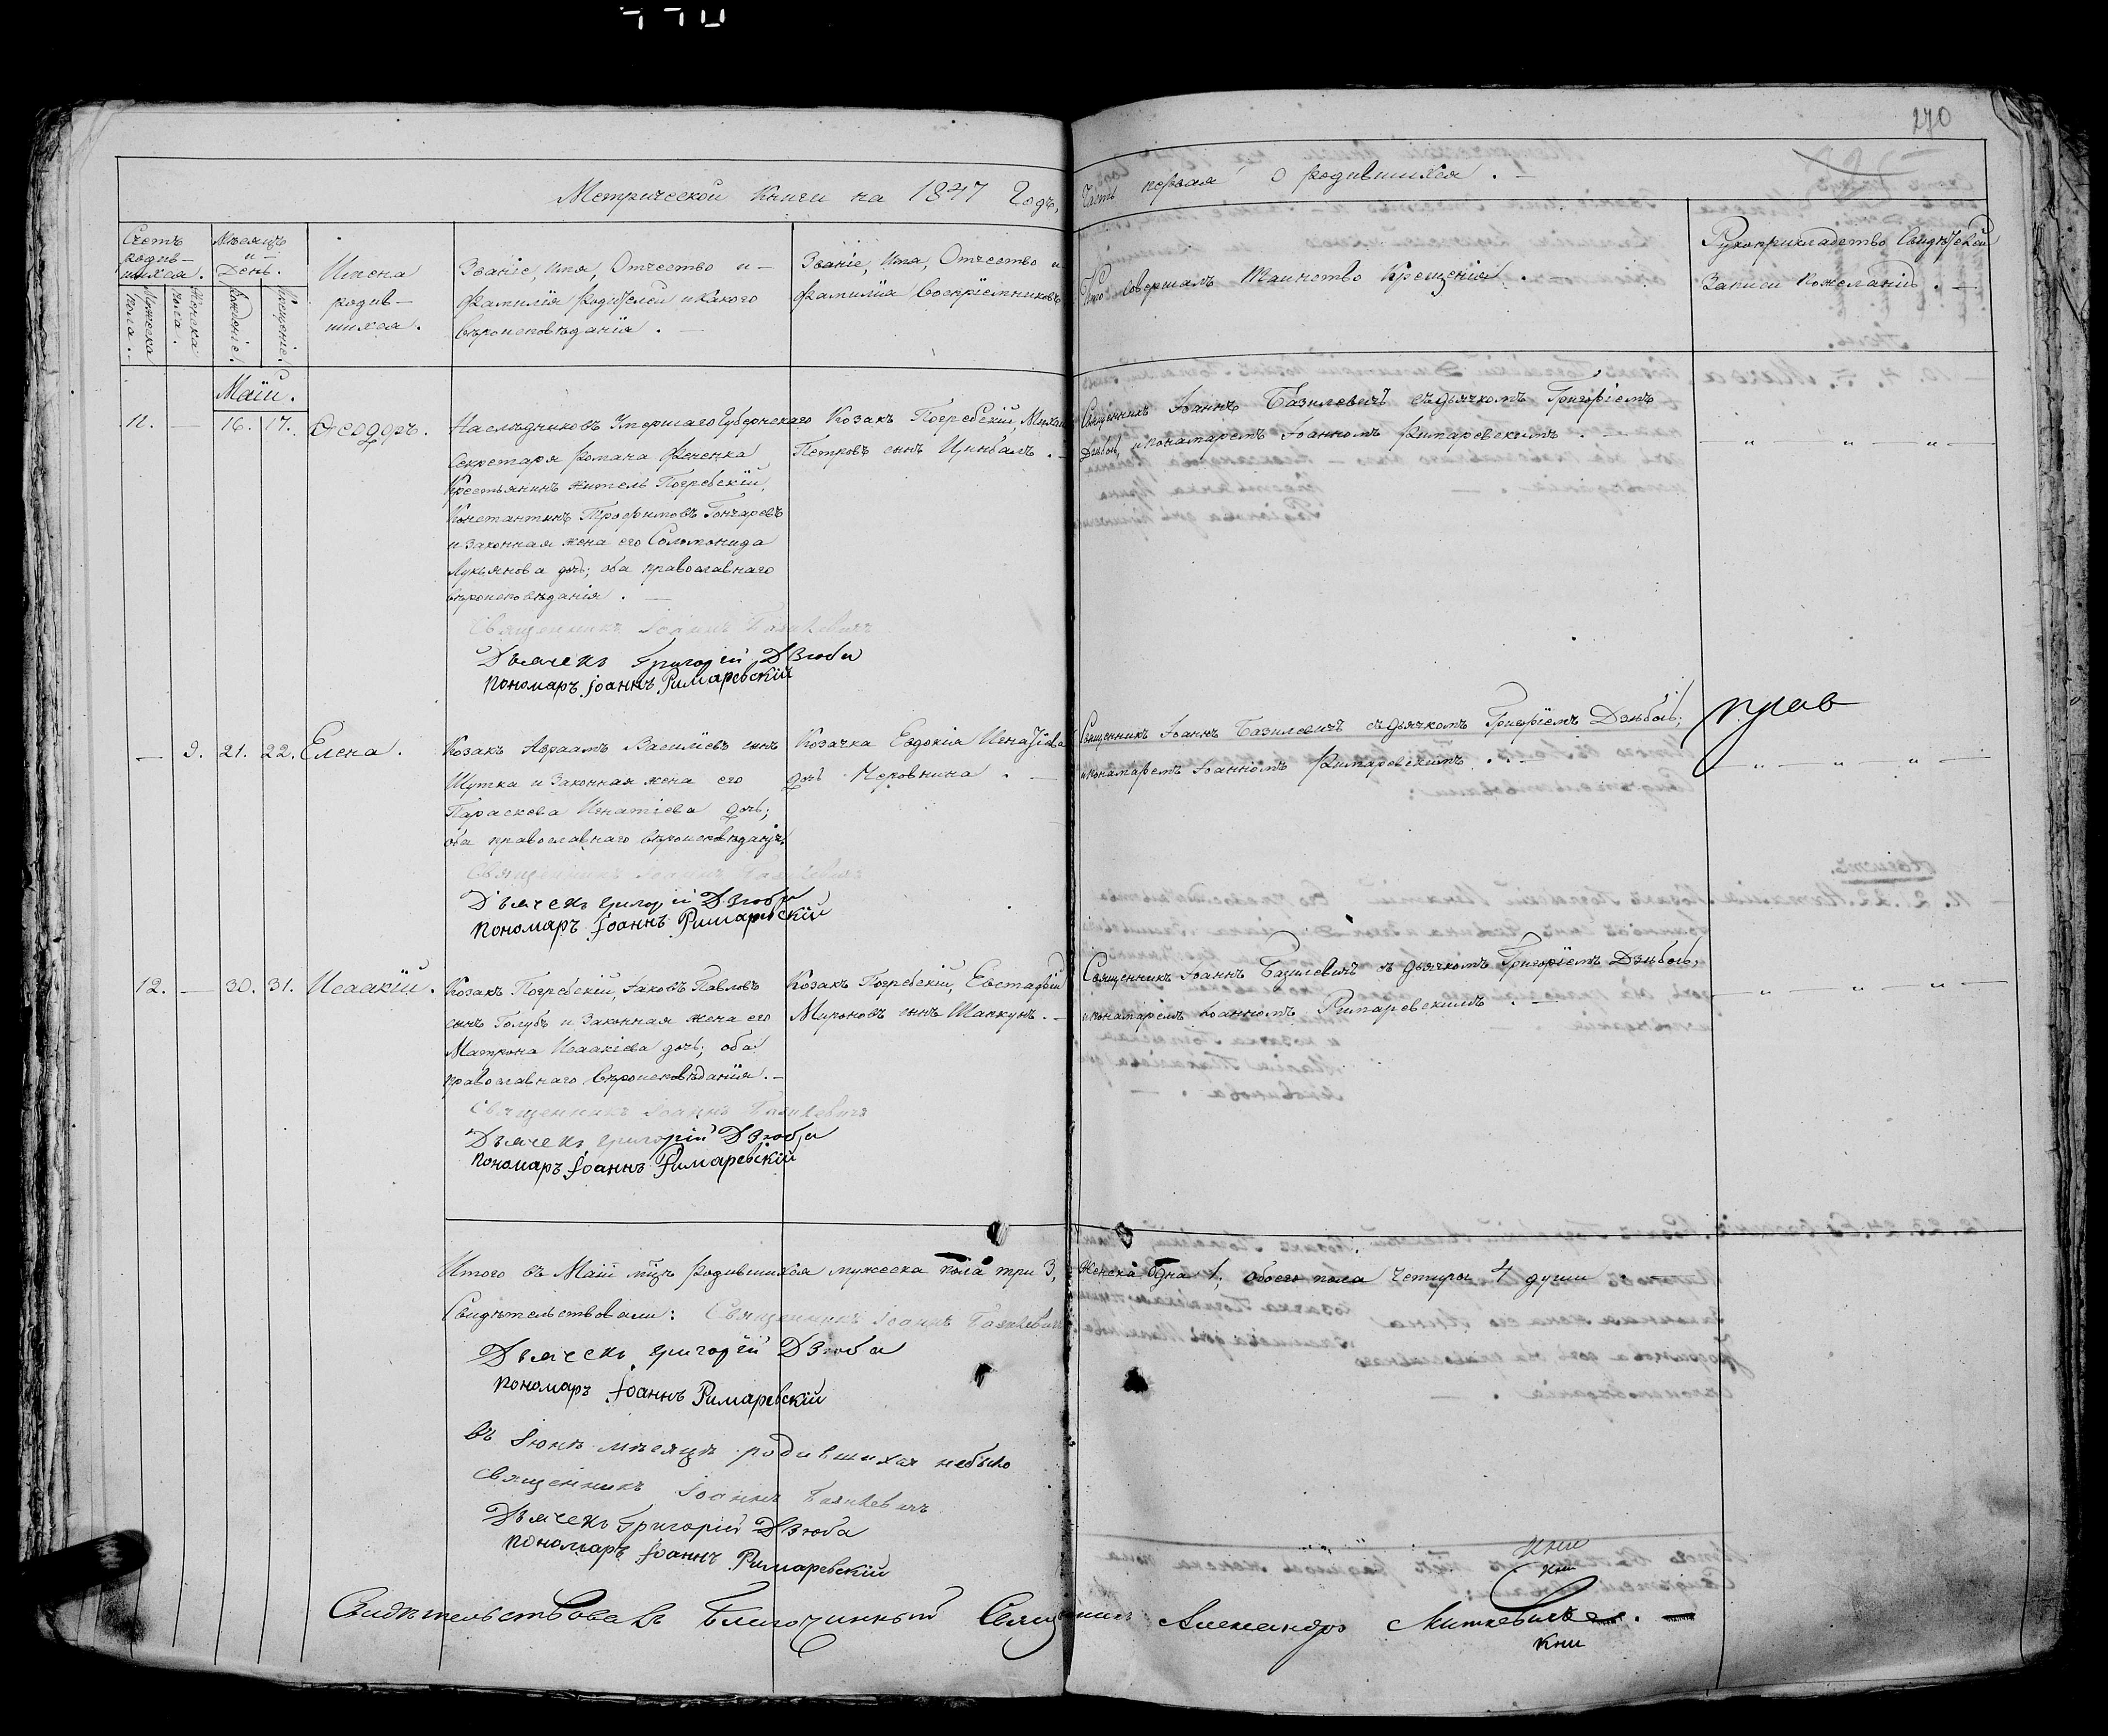 270
Метрической Книги на 1847 Годъ,
Часть первая о родившихся. —
Счетъ
родив-
шихся.
Мужеска
пола.
Женска
пола.
Мѣсяцъ
и
День.
Рожденіе.
Крещеніе.
Имена
родив-
шихся.
Званіе, Имя, Отчество и
Фамилія Родителей и какого
вѣроисповѣданія. —
Званіе, Имя, Отчество и
Фамиліи Воспріемниковъ
Кто совершалъ Таинство Крещенія. —
Рукоприкладство Свидѣтелей
Записи по желанію. —
Маій.
11. — 16. 17. Ѳеодоръ.
Наслѣдниковъ Умершаго Губернскаго
Секретаря Романа Фененка
Крестьянинъ житель Погребскій,
Константинъ Трофимовъ Гончаревъ
и Законная жена его Соломонида
Лукьянова дочь; оба православнаго
вѣроисповѣданія. —
Козакъ Погребскій, Михаи
Петровъ сынъ Цинбалъ. —
Священникъ Іоаннъ Базилевичъ съ дьячкомъ Григоріемъ
Дзюбою, и понамаремъ Іоанномъ Римаревскимъ. —
Священникъ Іоаннъ Базилевичъ
Дьячекъ Григорій Дзюба
пономаръ Іоаннъ Римаревскій
— 9. 21. 22. Елена.
Козакъ Авраамъ Васильевъ сынъ
Шутка и Законная жена его
Параскева Игнатіева дочь;
оба православнаго вѣроисповѣданія.
Козачка Евдокія Игнатіева
дочь
Священникъ Іоаннъ Базилевичъ съ дьячкомъ Григоріемъ Дзюбою;
и понамаремъ Іоанномъ Римаревскимъ. —
прав
Священникъ Іоаннъ Базилевичъ
Дьячекъ Григорій Дзюба
пономаръ Іоаннъ Римаревскій
12. — 30. 31. Исаакій.
Козакъ Погребскій, Іаковъ Павловъ
сынъ Голубъ и Законная жена его
Матрона Исаакіева дочь; оба
православнаго вѣроисповѣданія. —
Козакъ Погребскій, Евстафій
Мироновъ сынъ Шапкунъ. —
Священникъ Іоаннъ Базилевичъ съ дьячкомъ Григоріемъ Дзюбою,
и понамаремъ Іоанномъ Римаревскимъ. —
Священникъ Іоаннъ Базилевичъ
Дьячекъ Григорій Дзюба
пономаръ Іоаннъ Римаревскій
Итого въ Маіи мцѣ Родившихся мужеска пола три 3, Женска Одна 1, обоего пола четыри 4 души. —
Свидѣтельствовали: Священникъ Іоаннъ Базилевичъ
Дьячекъ Григорій Дзюба
пономаръ Іоаннъ Римаревскій
въ Іюнѣ мѣсяцѣ родившихся небыло
Священникъ Іоаннъ Базилевичъ
Дьячекъ Григорій Дзюба
пономаръ Іоаннъ Римаревскій
Свидѣтельствовалъ Благочинный Священникъ Александръ Миткевичъ. —
кни
кни
кни